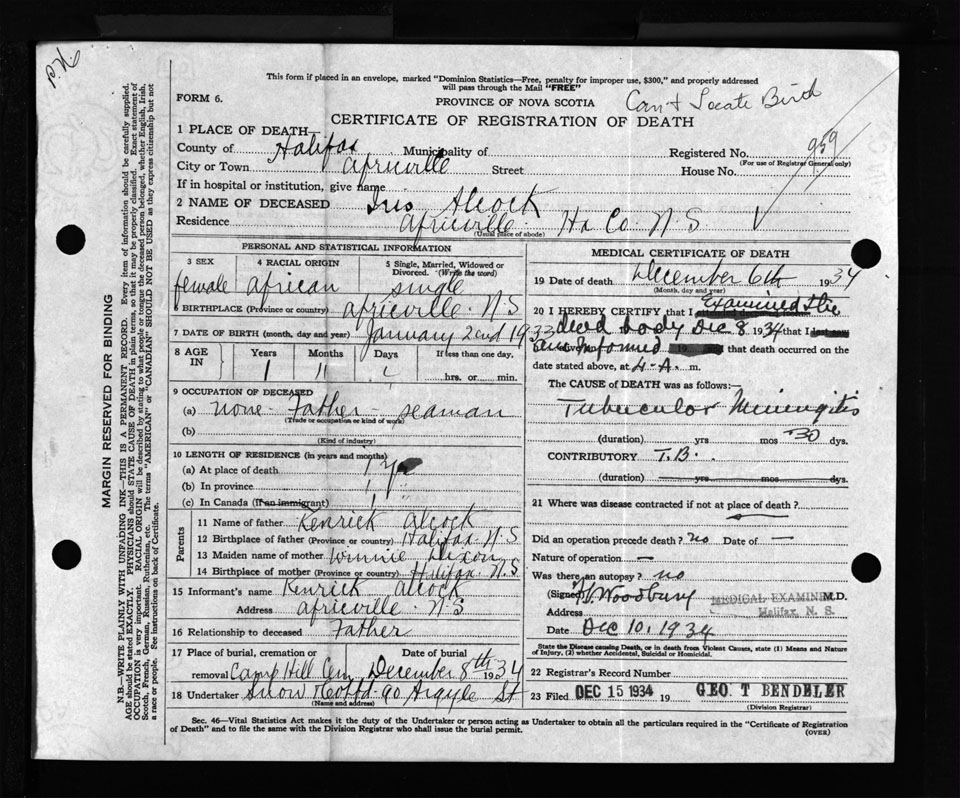 P.N.
This form if placed in an envelope, marked "Dominion Statistics—Free, penalty for improper use, $300," and properly addressed
will pass through the Mail "FREE"
FORM 6.
PROVINCE OF NOVA SCOTIA
Can't Locate Bird
CERTIFICATE OF REGISTRATION OF DEATH
1 PLACE OF DEATH—
County of Halifax Municipality of
Registered No. 959
(For use of Registrar General only)
City or Town Africville Street House No.
If in hospital or institution, give name
2 NAME OF DECEASED Iris Alcock
Residence Africville Hx Co. N.S.
(Usual place of abode)
PERSONAL AND STATISTICAL INFORMATION
3 SEX
female
4 RACIAL ORIGIN
african
5 Single, Married, Widowed or
Divorced. (Write the word)
single
6 BIRTHPLACE (Province or country) africville. N.S
7 DATE OF BIRTH (month, day and year) January 2nd 1933
8 AGE IN Years Months Days If less than one day,
1 11 4 hrs. or min.
9 OCCUPATION OF DECEASED
(a) none - Father - seaman
(Trade or occupation or kind of work)
(b)
(Kind of industry)
10 LENGTH OF RESIDENCE (in years and months)
(a) At place of death 1 yr
(b) In province 1 "
(c) In Canada (If an immigrant)
Parents
11 Name of father Kenrick Alcock
12 Birthplace of father (Province or country) Halifax N.S
13 Maiden name of mother Winnie Dixon
14 Birthplace of mother (Province or country) Halifax N.S
15 Informant's name Kenrick Alcock
Address africville. N.S
16 Relationship to deceased Father
17 Place of burial, cremation or
removal Camp Hill Cem
Date of burial
December 8th 1934
18 Undertaker Snow & Co Ltd 90 Argyle St
(Name and address)
MEDICAL CERTIFICATE OF DEATH
19 Date of death December 6th 1934
(Month, day and year)
20 I HEREBY CERTIFY that I Examined the
dead body Dec 8 1934 that I last saw
am informed 19 that death occurred on the
date stated above, at 4-A. m.
The CAUSE of DEATH was as follows:—
Tubercular Meningitis
(duration) yrs mos 30 dys.
CONTRIBUTORY T.B.
(duration) yrs mos dys.
21 Where was disease contracted if not at place of death?
Did an operation precede death? no Date of —
Nature of operation —
Was there an autopsy? no
(Signed) Woodbury MEDICAL EXAMINER M.D.
Address Halifax, N. S.
Date Dec 10, 1934
State the Disease causing Death, or in death from Violent Causes, state (1) Means and Nature
of Injury, (2) whether Accidental, Suicidal or Homicidal.
22 Registrar's Record Number
23 Filed DEC 15 1934 19 GEO. T BENDELER
(Division Registrar)
Sec. 46—Vital Statistics Act makes it the duty of the Undertaker or person acting as Undertaker to obtain all the particulars required in the "Certificate of Registration
of Death" and to file the same with the Division Registrar who shall issue the burial permit.
(OVER)
MARGIN RESERVED FOR BINDING
N.B.—WRITE PLAINLY WITH UNFADING INK—THIS IS A PERMANENT RECORD. Every item of information should be carefully supplied.
AGE should be stated EXACTLY. PHYSICIANS should STATE CAUSE OF DEATH in plain terms, so that it may be properly classified. Exact statement of
OCCUPATION is very important. RACIAL ORIGIN will be described by stating to what people or tongue the deceased person belonged, whether English, Irish,
Scotch, French, German, Russian, Ruthenian, etc. The terms "AMERICAN" or "CANADIAN" SHOULD NOT BE USED as they express citizenship but not
a race or people. See instructions on back of Certificate.